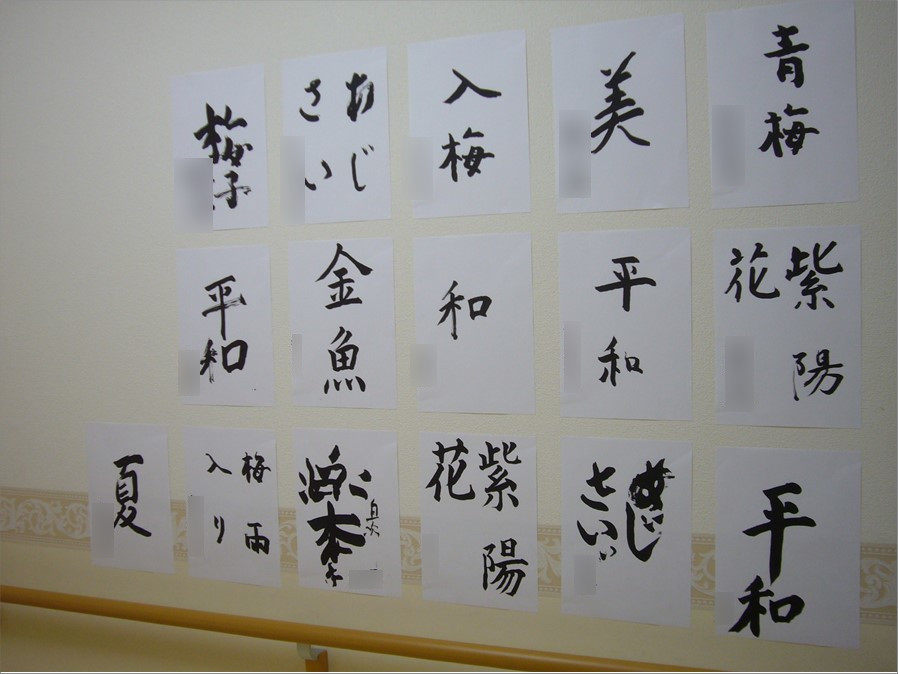 青梅
美
入梅
あじ
さい
紫陽
花
平和
和
金魚
平和
平和
さい
紫陽
花
梅雨
入り
夏